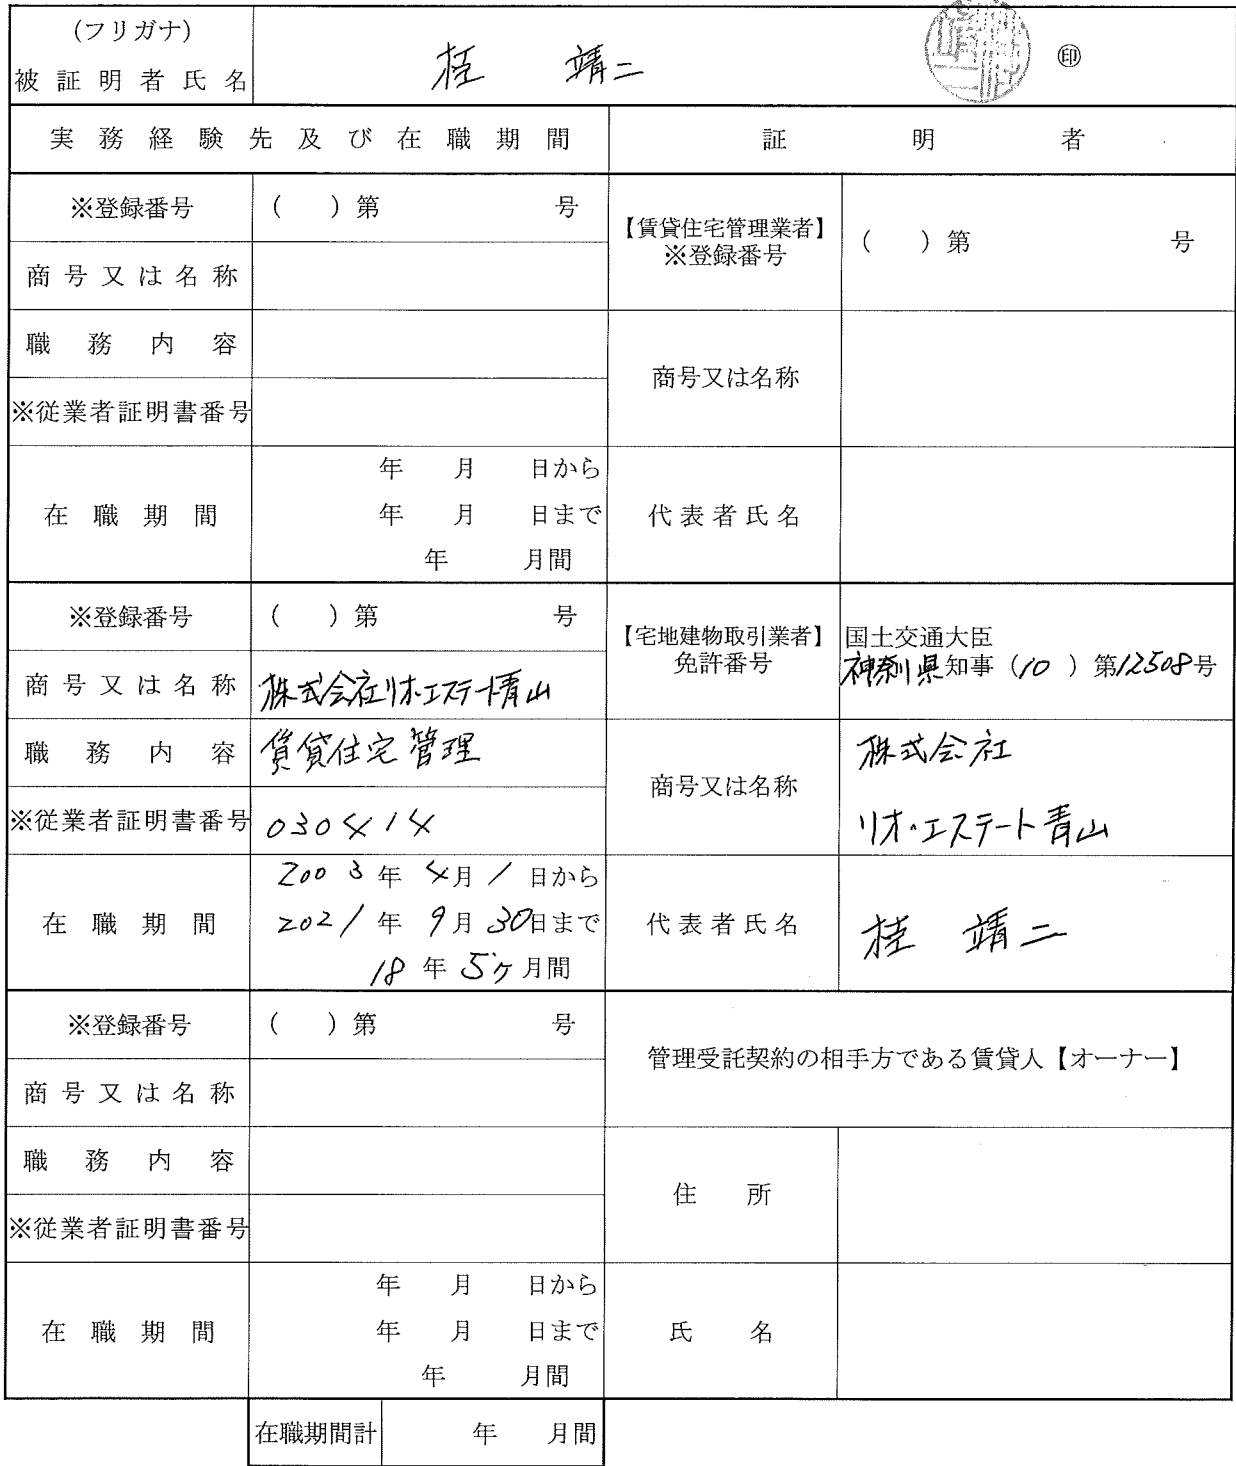 (フリガナ)
被証明者氏名 桂 靖二 ㊞
実務経験先及び在職期間 証明者
※登録番号 ( )第 号 【賃貸住宅管理業者】 ※登録番号 ( )第 号
商号又は名称
職務内容 商号又は名称
※従業者証明書番号
在職期間 年 月 日から
年 月 日まで 代表者氏名
年 月間
※登録番号 ( )第 号 【宅地建物取引業者】 国土交通大臣
免許番号 神奈川県知事(10)第12508号
商号又は名称 株式会社リオ・エステート青山
職務内容 賃貸住宅管理 商号又は名称 株式会社
※従業者証明書番号 030414 リオ・エステート青山
在職期間 2003年4月1日から
2021年9月30日まで 代表者氏名 桂 靖二
18年5ヶ月間
※登録番号 ( )第 号 管理受託契約の相手方である賃貸人【オーナー】
商号又は名称
職務内容 住所
※従業者証明書番号
在職期間 年 月 日から
年 月 日まで 氏名
年 月間
在職期間計 年 月間